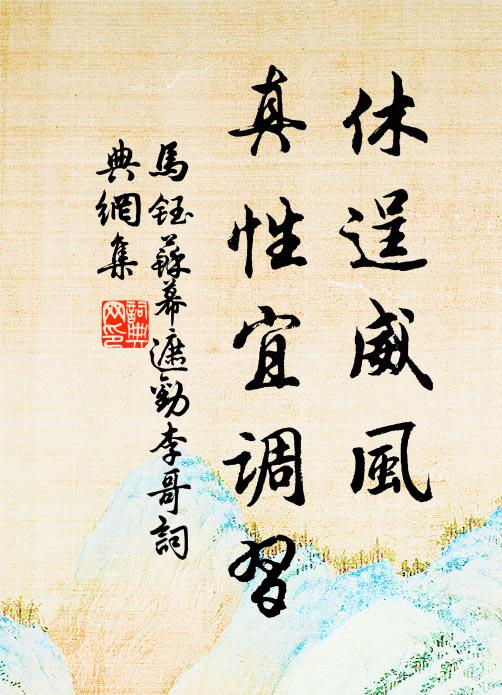 休逞威風
真性宜調習
馬鈺蘇幕遮勸李哥詞
典網集
詞典網印